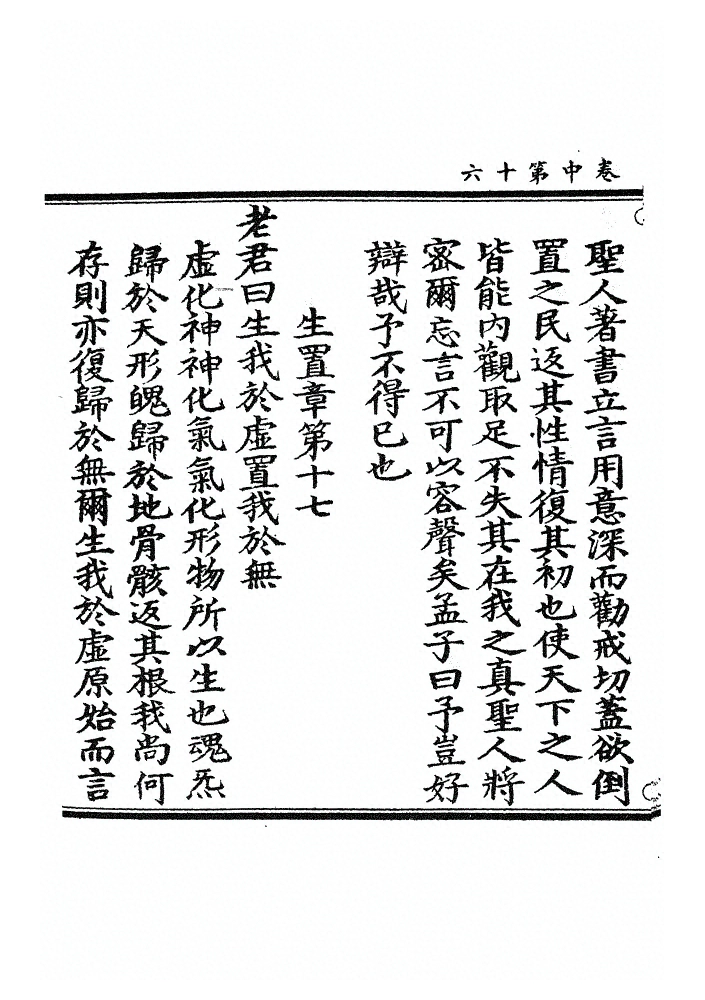 卷中第十六
聖人著書立言用意深而勸戒切蓋欲倒
置之民返其性情復其初也使天下之人
皆能內觀取足不失其在我之真聖人將
密爾忘言不可以容聲矣孟子曰予豈好
辯哉予不得已也
生置章第十七
老君曰生我於虛置我於無
虛化神神化氣氣化形物所以生也魂炁
歸於天形魄歸於地骨骸返其根我尚何
存則亦復歸於無爾生我於虛原始而言